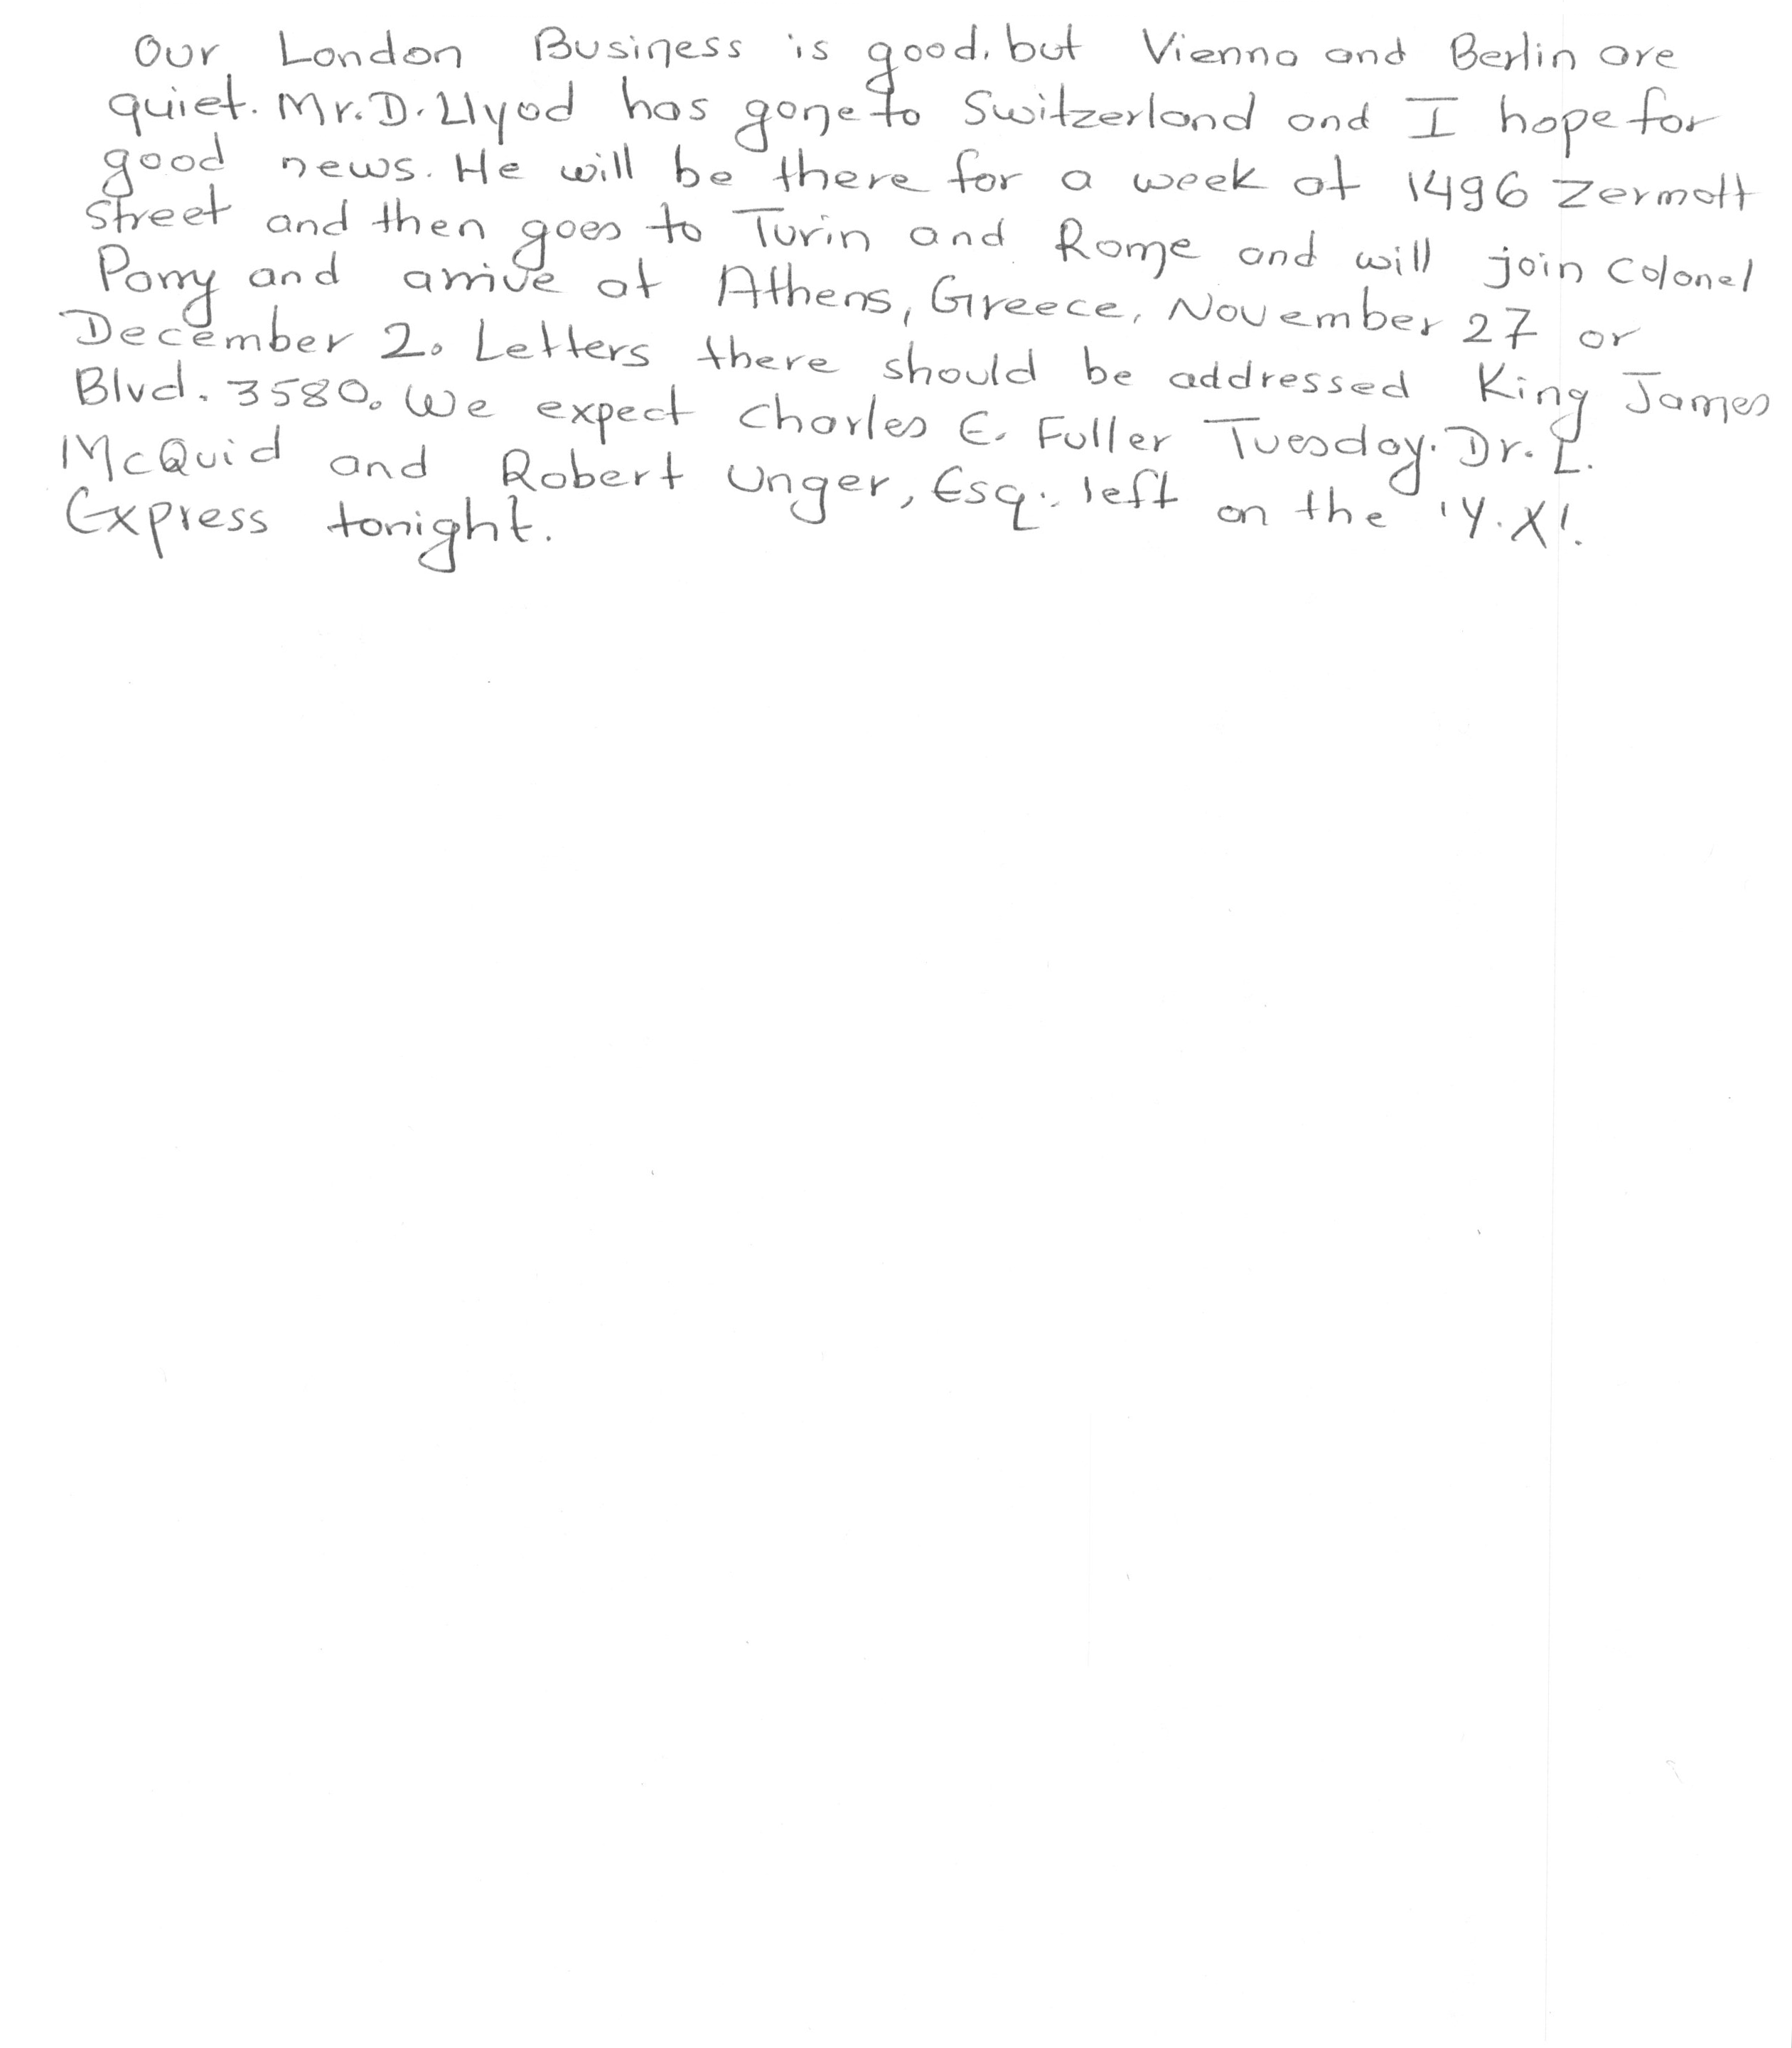 Our London Business is good, but Vienna and Berlin are
quiet. Mr. D. Llyod has gone to Switzerland and I hope for
good news. He will be there for a week at 1496 Zermott
street and then goes to Turin and Rome and will join Colonel
Parry and arrive at Athens, Greece, November 27 or
December 2. Letters there should be addressed King James
Blvd. 3580. We expect Charles E. Fuller Tuesday. Dr. L.
McQuid and Robert Unger, Esq. left on the 'Y.X'.
Express tonight.